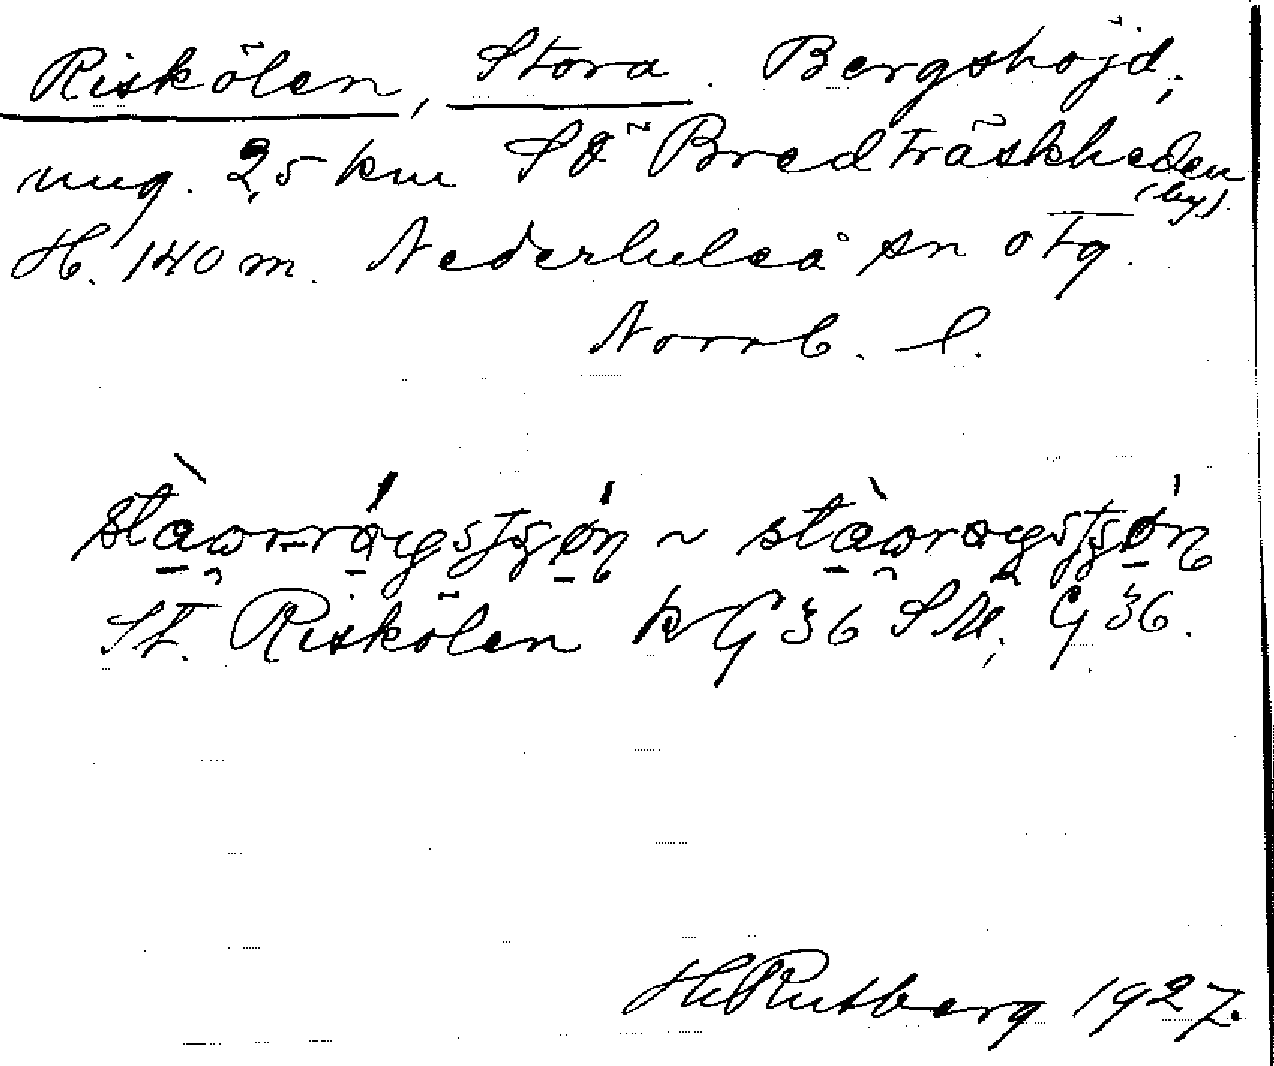 Riskölen, Stora. Bergshöjd,
ung. 2,5 km SÖ Bredträskheden
(by).
H. 140 m. Nederluleå sn o tg.
Norrb. l.
St. Riskölen kG 36 SM, G 36.
H Rutberg 1927.